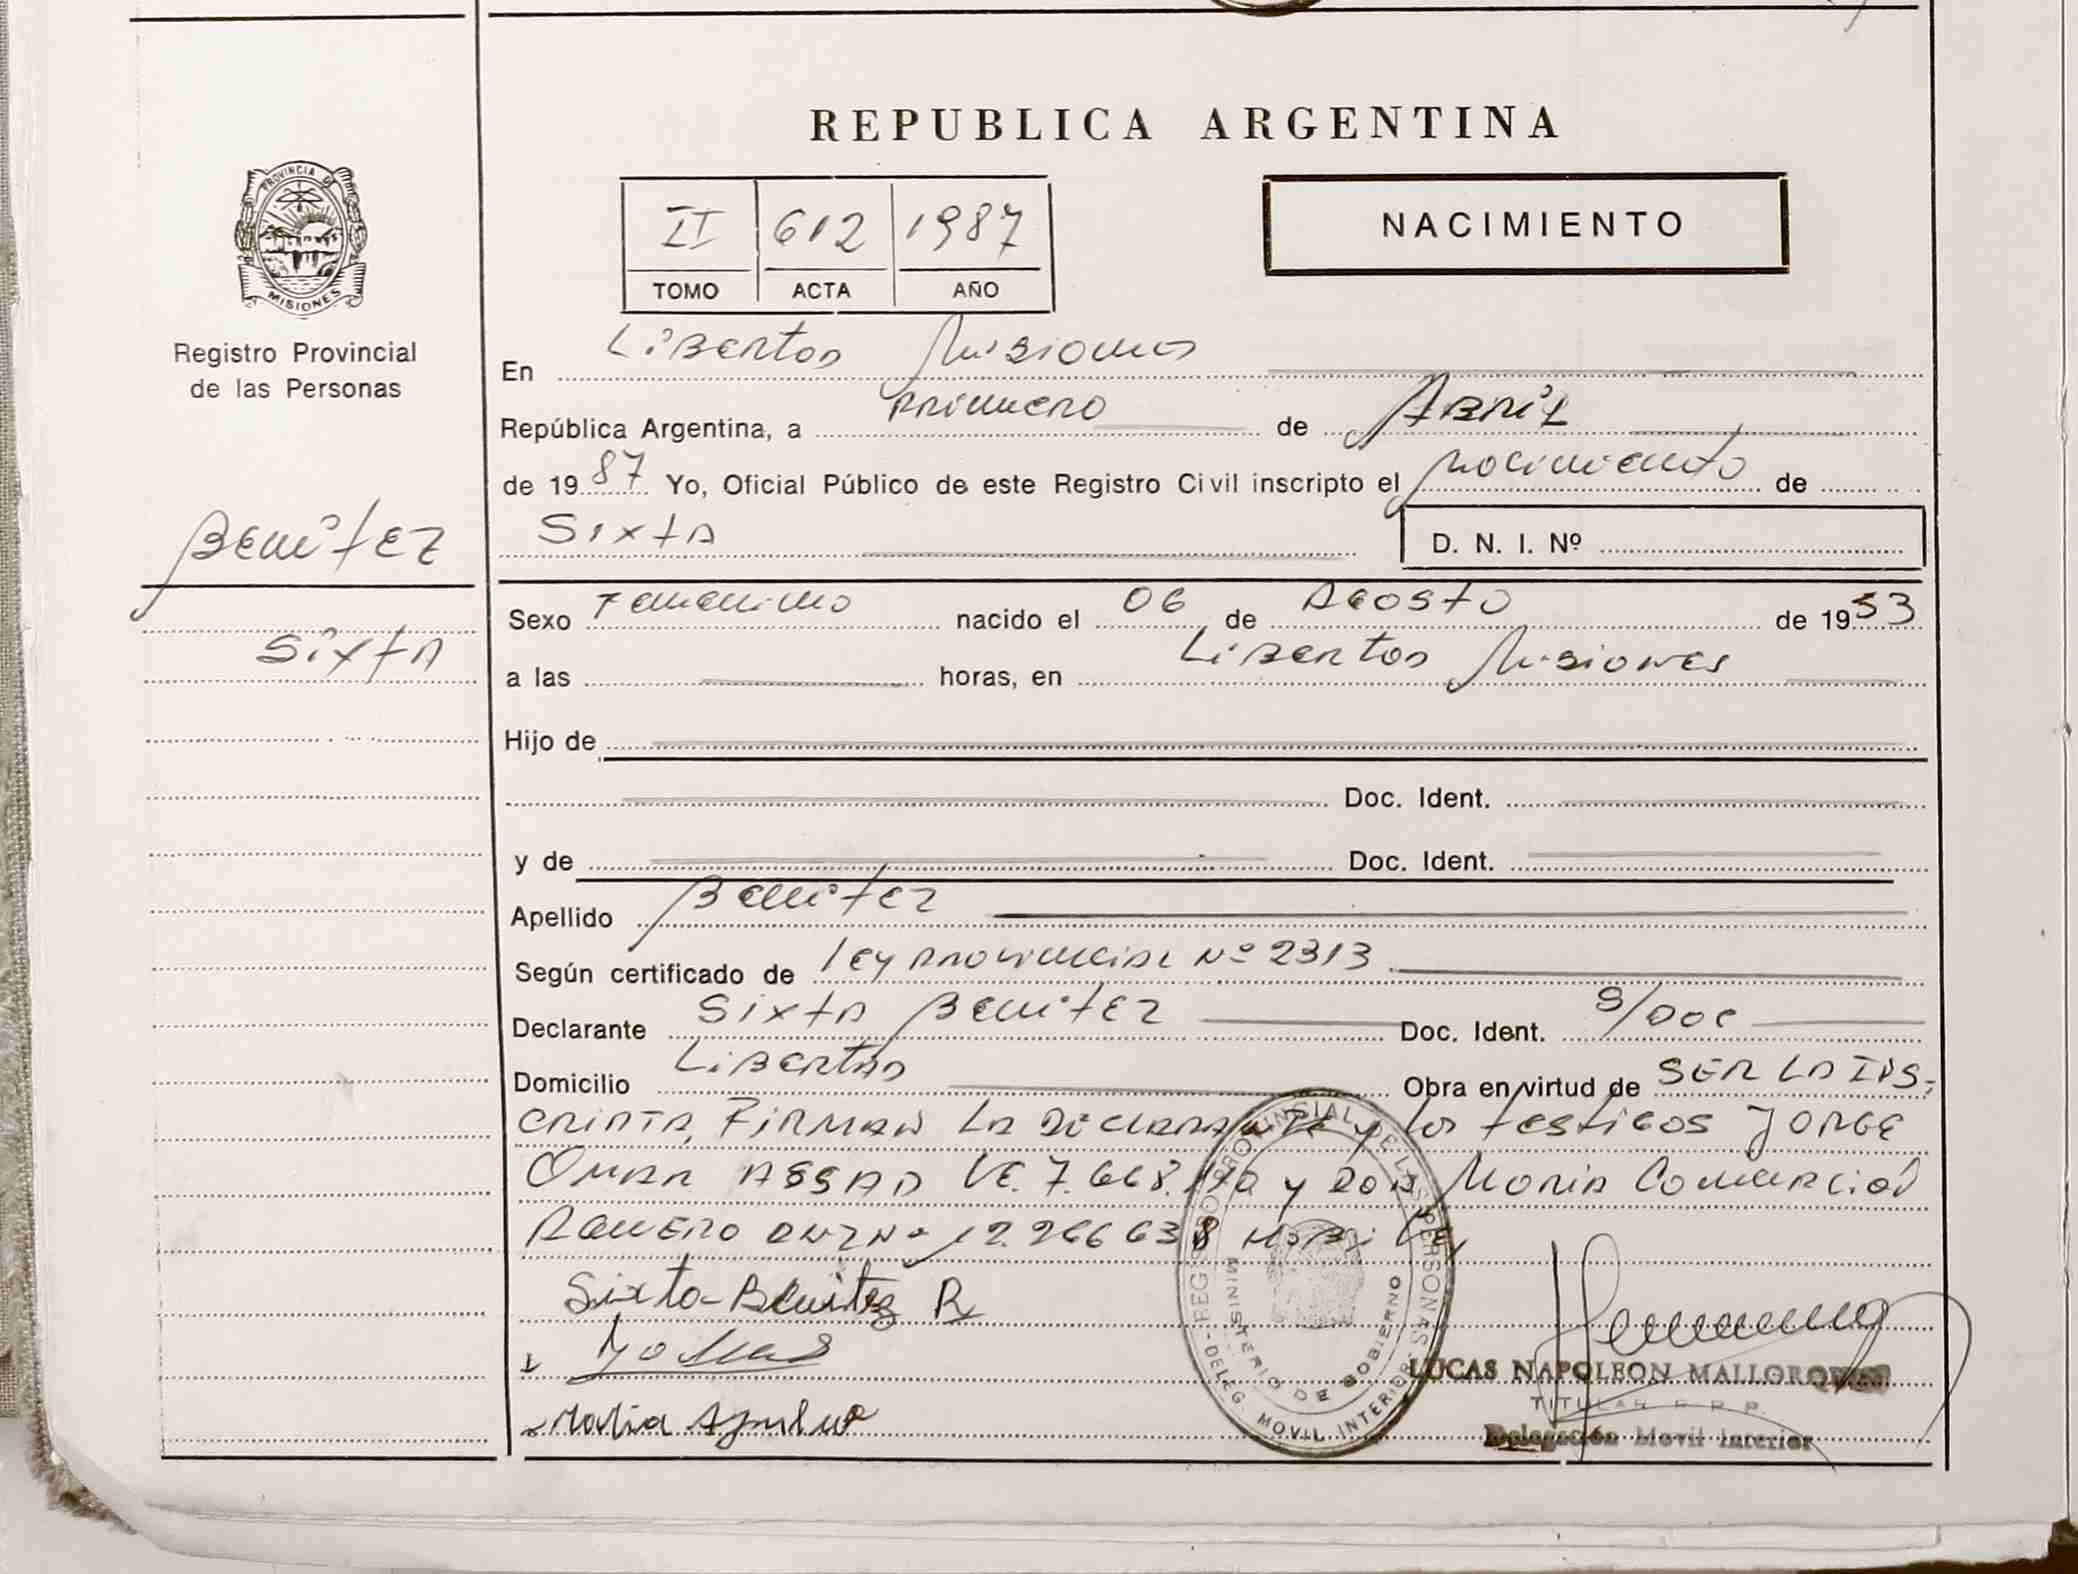 REPUBLICA ARGENTINA
PROVINCIA DE
MISIONES
Registro Provincial
de las Personas
II 612 1987
TOMO ACTA AÑO
NACIMIENTO
En Libertad Misiones
República Argentina, a primero de Abril
de 1987 Yo, Oficial Público de este Registro Civil inscripto el nacimiento de
Benitez
Sixta
D. N. I. Nº
Sixta
Sexo Femenino nacido el 06 de Agosto de 1953
a las horas, en Libertad Misiones
Hijo de
Doc. Ident.
y de Doc. Ident.
Apellido Benitez
Según certificado de Ley Provincial Nº 2313
Declarante Sixta Benitez Doc. Ident. S/Doc
Domicilio Libertad Obra en virtud de SER LA INS-
CRIPTA, FIRMAN LA DECLARANTE y los testigos JORGE
OMAR ASSAD LE. 7.668. y María
ROMERO DNI Nº 12.266638
Sixta-Benitez R
María
REGISTRO PROVINCIAL DE LAS PERSONAS
MINISTERIO DE GOBIERNO
DELEG. MOVIL INTERIOR
LUCAS NAPOLEON
TITULAR R. P. P.
Delegación Movil Interior